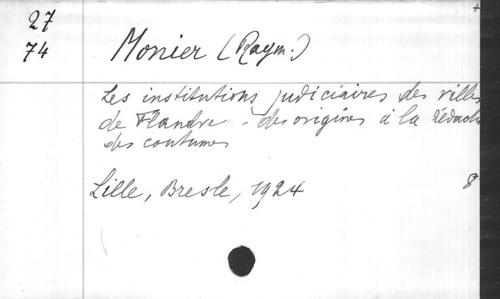 27
74
Monier (Raym.)
Les institutions judiciaires des villes
de Flandre - des origines à la rédact
des coutumes
Lille, Bresle, 1924
8